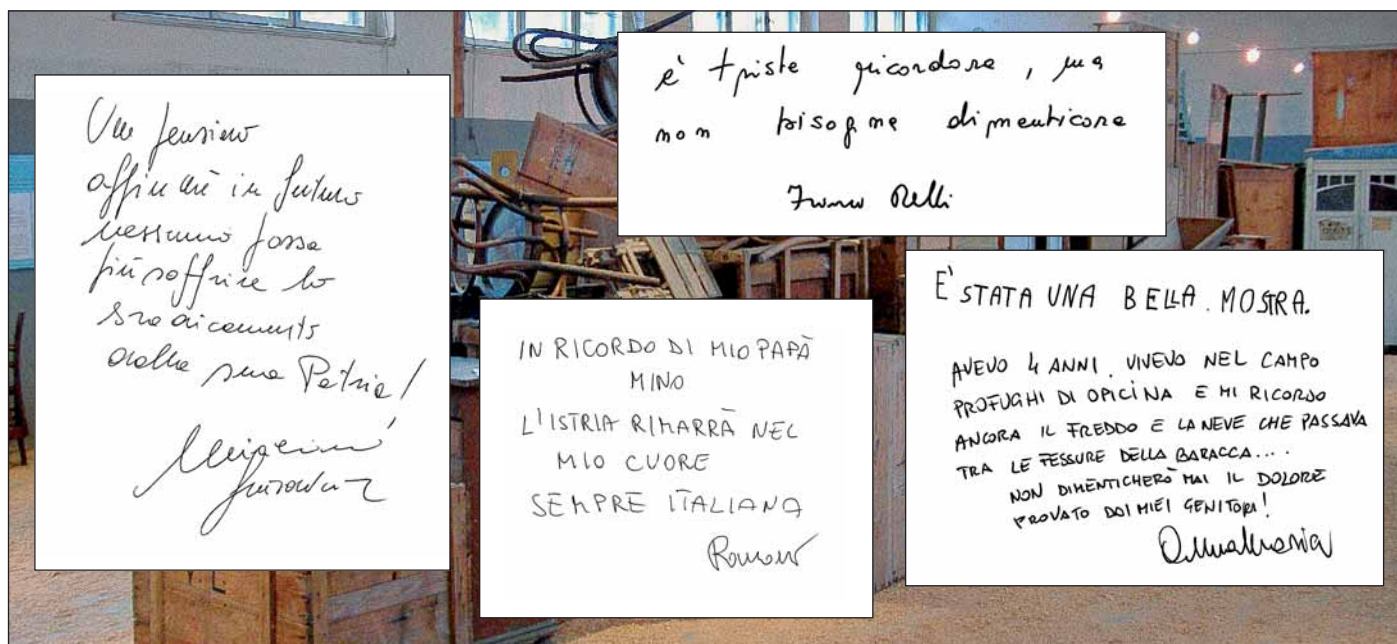 Un pensiero
affinchè in futuro
nessuno possa
più soffrire lo
sradicamento
dalla sua Patria!
è triste ricordare, ma
non bisogna dimenticare
IN RICORDO DI MIO PAPÀ
MINO
L'ISTRIA RIMARRÀ NEL
MIO CUORE
SEMPRE ITALIANA
Romano
E' STATA UNA BELLA MOSTRA.
AVEVO 4 ANNI. VIVEVO NEL CAMPO
PROFUGHI DI OPICINA E MI RICORDO
ANCORA IL FREDDO E LA NEVE CHE PASSAVA
TRA LE FESSURE DELLA BARACCA....
NON DIMENTICHERÒ MAI IL DOLORE
PROVATO DAI MIEI GENITORI!
Annamaria